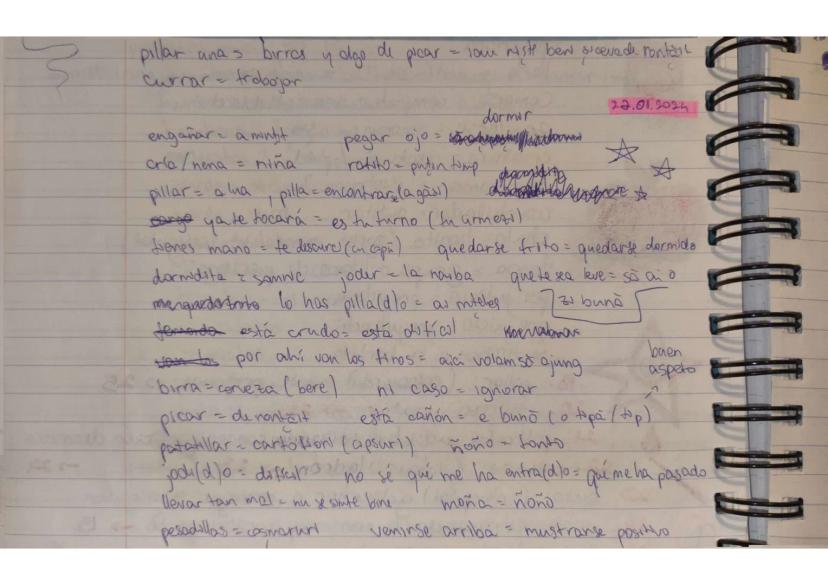 pillar unas birras y algo de picar = iau niște beri și ceva de ronțăit
currar = trabajar
22.01.2024
dormir
engañar = a mințit pegar ojo =
cría/nena = niña ratito = puțin timp
pillar = a lua, pilla = encontrar (a găsi)
ya te tocará = es tu turno (tu urmezi)
tienes mano = te descurci (cu copii) quedarse frito = quedarse dormido
dormidita = somnic joder = la naiba que te sea leve = să ai o
lo has pilla(d)o = ai înțeles zi bună
está crudo = está difícil
por ahí van los tiros = aici voiam să ajung buen
birra = cerveza (bere) ni caso = ignorar aspeto
picar = de ronțăit está cañón = e bună (o tipă/tip)
patatillar = cartofiori (cipsuri) ñoño = tonto
jodi(d)o = difícil no sé qué me ha entra(d)o = qué me ha pasado
llevar tan mal = nu se simte bine moña = ñoño
pesadillas = coșmaruri venirse arriba = mustrarse positivo